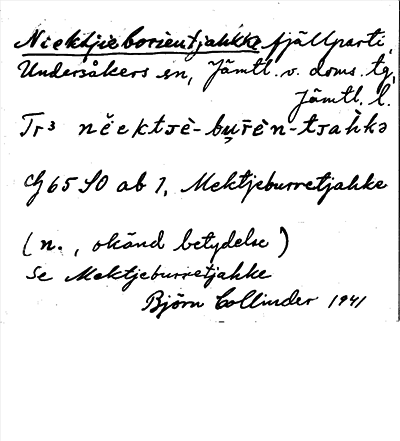 Niektjieborientjahkke fjällparti,
Undersåkers sn, Jämtl. v. doms. tg,
Jämtl. l.
Tr³ nĕektjè-bu̯r̄èn-tjah̀kə
Gg 65 SO ab 1, Mektjeburretjahke
(n., okänd betydelse)
Se Mektjeburretjahke
Björn Collinder 1941